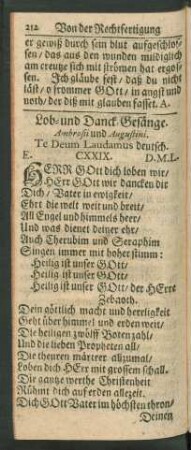 212 Von der Rechtfertigung
er gewiß durch sein blut aufgeschlos-
sen / das aus den wunden mildiglich
am creutze sich mit strömen hat ergos-
sen. Ich gläube fest / daß du nicht
läst / o frommer GOtt / in angst und
noth / der diß mit glauben fasset. A.
Lob- und Danck-Gesänge.
Ambrosii und Augustini.
Te Deum Laudamus deutsch.
E. CXXIX. D.M.L.
HERR GOtt dich loben wir /
HErr GOtt wir dancken dir
Dich / Vater in ewigkeit /
Ehrt die welt weit und breit /
All Engel und himmels heer /
Und was dienet deiner ehr /
Auch Cherubim und Seraphim
Singen immer mit hoher stimm:
Heilig ist unser GOtt /
Heilig ist unser GOtt /
Heilig ist unser GOtt / der HErre
Zebaoth.
Dein göttlich macht und herrligkeit
Geht über himmel und erden weit /
Die heiligen zwölff Boten zahl /
Und die lieben Propheten all /
Die theuren märterer allzumal /
Loben dich HErr mit grossem schall.
Die gantze werthe Christenheit
Rühmt dich auf erden allezeit.
Dich GOtt Vater im höchsten thron /
Deinen